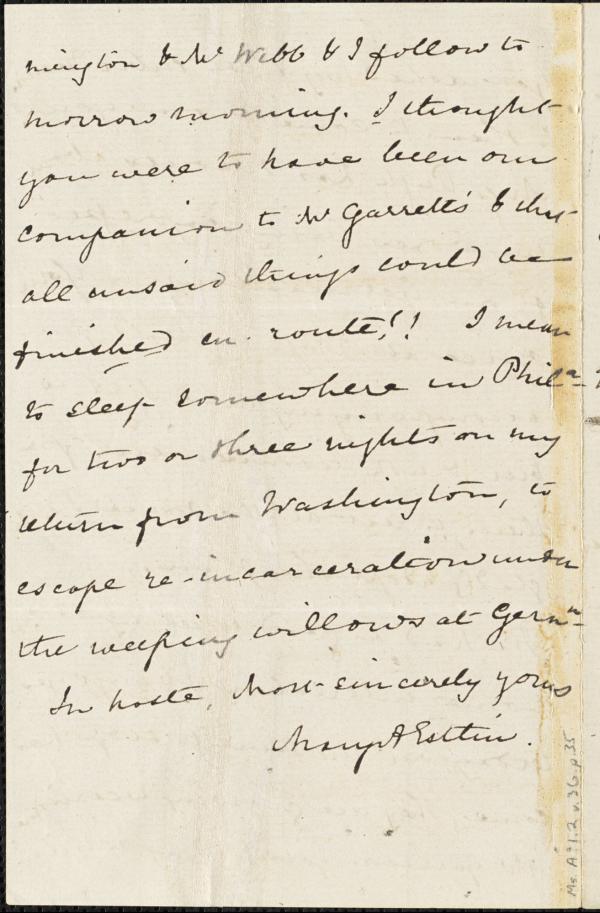 mington & Mr Webb & I follow to
morrow morning. I thought
you were to have been our
companion to Mr Garrett's & that
all unsaid things could be
finished en route!! I mean
to sleep somewhere in Phila-
for two or three nights on my
return from Washington, to
escape re-incarceration under
the weeping willows at Germn-
In haste, Most sincerely yours
Mary A Estlin.
Ms. A.9.1.2 v.36 p.35